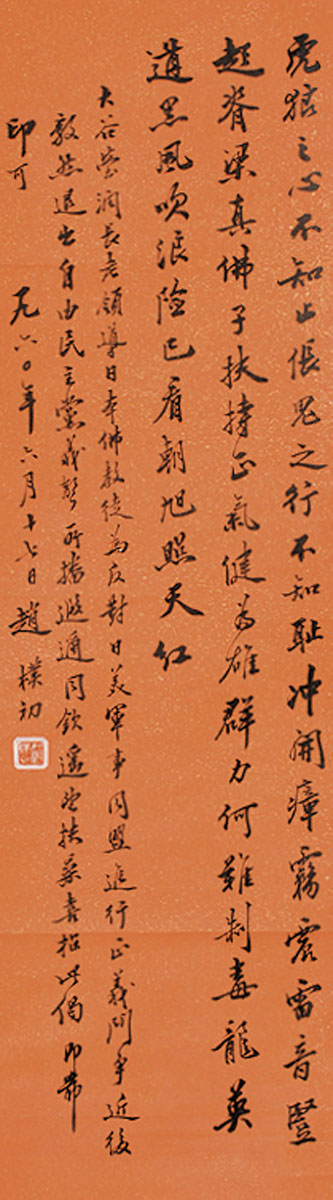 虎狼之心不知止伥鬼之行不知耻冲開瘴霧震雷音竪
起脊梁真佛子扶持正氣健為雄群力何難制毒龍莫
道黑風吹浪險已看朝旭照天紅
大谷瑩潤長老領導日本佛教徒為反對日美軍事同盟進行正義鬥爭近復
毅然退出自由民主黨義聲所播遐邇同欽遥望扶桑喜拈此偈即希
印可
一九六〇年六月十七日趙樸初